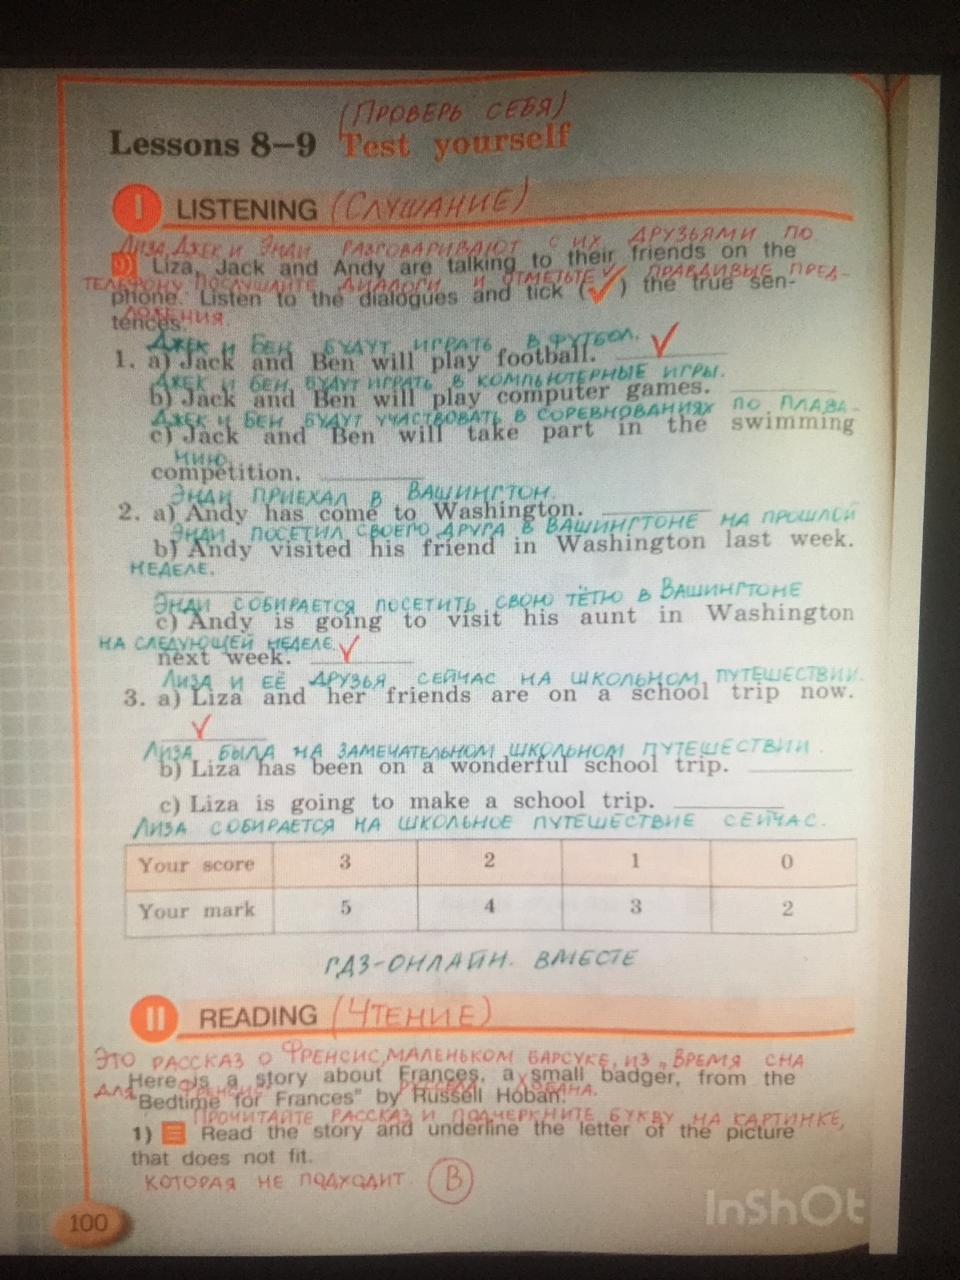 (ПРОВЕРЬ СЕБЯ)
Lessons 8–9 Test yourself
I LISTENING (СЛУШАНИЕ)
ЛИЗА, ДЖЕК И ЭНДИ РАЗГОВАРИВАЮТ С ИХ ДРУЗЬЯМИ ПО
Liza, Jack and Andy are talking to their friends on the
ТЕЛЕФОНУ. ПОСЛУШАЙТЕ ДИАЛОГИ И ОТМЕТЬТЕ ✓ ПРАВДИВЫЕ ПРЕД-
phone. Listen to the dialogues and tick (✓) the true sen-
ЛОЖЕНИЯ.
tences.
ДЖЕК И БЕН БУДУТ ИГРАТЬ В ФУТБОЛ.
1. a) Jack and Ben will play football. ✓
ДЖЕК И БЕН БУДУТ ИГРАТЬ В КОМПЬЮТЕРНЫЕ ИГРЫ.
b) Jack and Ben will play computer games.
ДЖЕК И БЕН БУДУТ УЧАСТВОВАТЬ В СОРЕВНОВАНИЯХ ПО ПЛАВА-
c) Jack and Ben will take part in the swimming
НИЮ
competition.
ЭНДИ ПРИЕХАЛ В ВАШИНГТОН.
2. a) Andy has come to Washington.
ЭНДИ ПОСЕТИЛ СВОЕГО ДРУГА В ВАШИНГТОНЕ НА ПРОШЛОЙ
b) Andy visited his friend in Washington last week.
НЕДЕЛЕ.
ЭНДИ СОБИРАЕТСЯ ПОСЕТИТЬ СВОЮ ТЁТЮ В ВАШИНГТОНЕ
c) Andy is going to visit his aunt in Washington
НА СЛЕДУЮЩЕЙ НЕДЕЛЕ.
next week. ✓
ЛИЗА И ЕЁ ДРУЗЬЯ СЕЙЧАС НА ШКОЛЬНОМ ПУТЕШЕСТВИИ.
3. a) Liza and her friends are on a school trip now.
✓
ЛИЗА БЫЛА НА ЗАМЕЧАТЕЛЬНОМ ШКОЛЬНОМ ПУТЕШЕСТВИИ.
b) Liza has been on a wonderful school trip.
c) Liza is going to make a school trip.
ЛИЗА СОБИРАЕТСЯ НА ШКОЛЬНОЕ ПУТЕШЕСТВИЕ СЕЙЧАС.
Your score 3 2 1 0
Your mark 5 4 3 2
ГДЗ-ОНЛАЙН. ВМЕСТЕ
II READING (ЧТЕНИЕ)
ЭТО РАССКАЗ О ФРЕНСИС, МАЛЕНЬКОМ БАРСУКЕ, ИЗ „ВРЕМЯ СНА
Here is a story about Frances, a small badger, from the
ДЛЯ ФРЕНСИС" РУССЕЛА ХОБАНА.
"Bedtime for Frances" by Russell Hoban.
ПРОЧИТАЙТЕ РАССКАЗ И ПОДЧЕРКНИТЕ БУКВУ НА КАРТИНКЕ,
1) Read the story and underline the letter of the picture
that does not fit.
КОТОРАЯ НЕ ПОДХОДИТ. B
100
InShOt